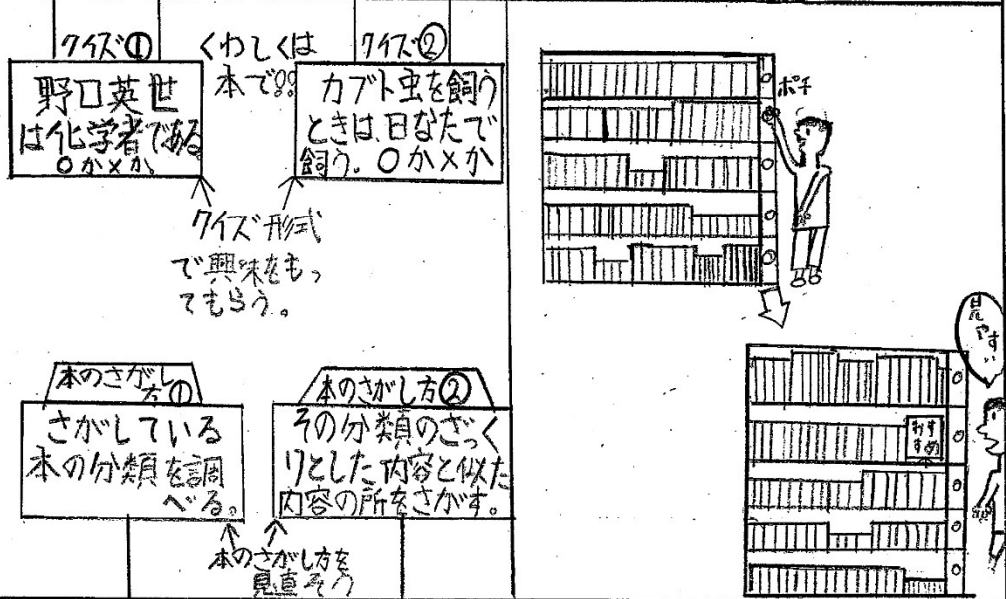 クイズ①
野口英世
は化学者である
○か×か。
くわしくは
本で!!
クイズ②
カブト虫を飼う
ときは、日なたで
飼う。○か×か
クイズ形式
で興味をもっ
てもらう。
本のさがし
方①
さがしている
本の分類を調
べる。
本のさがし方②
その分類のざっく
りとした内容と似た
内容の所をさがす。
本のさがし方を
見直そう
ポチ
見やすい
おすすめ